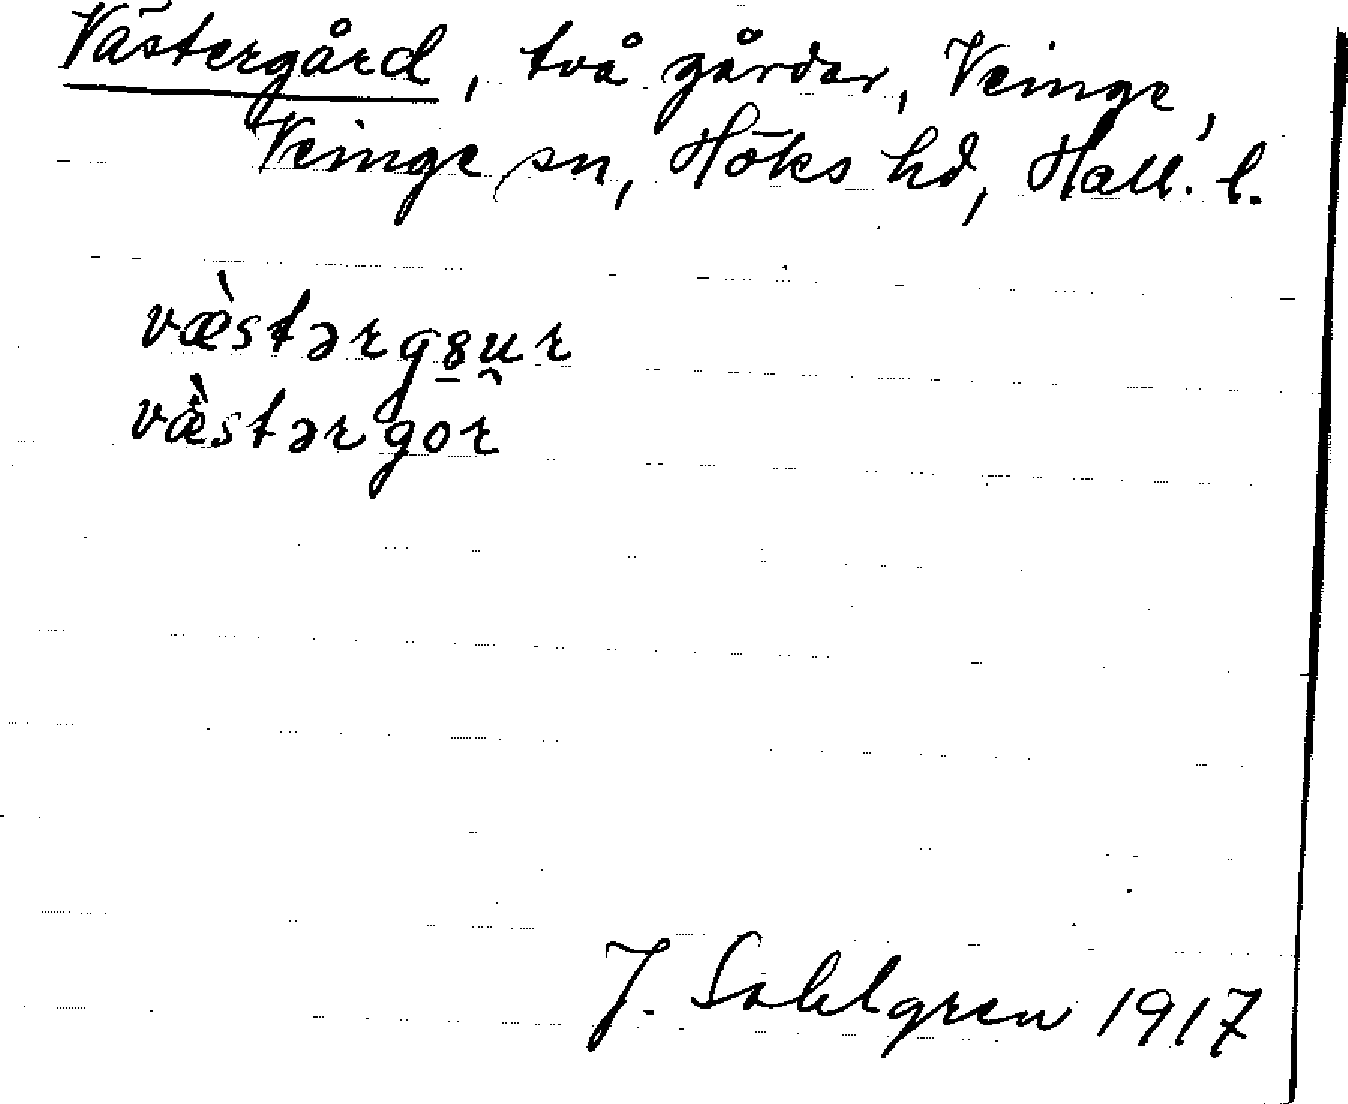 Västergård, två gårdar, Veinge,
Veinge sn, Höks hd, Hall. l.
væ̀stərg8̱u̯r
væ̀stərgor
J. Sahlgren 1917